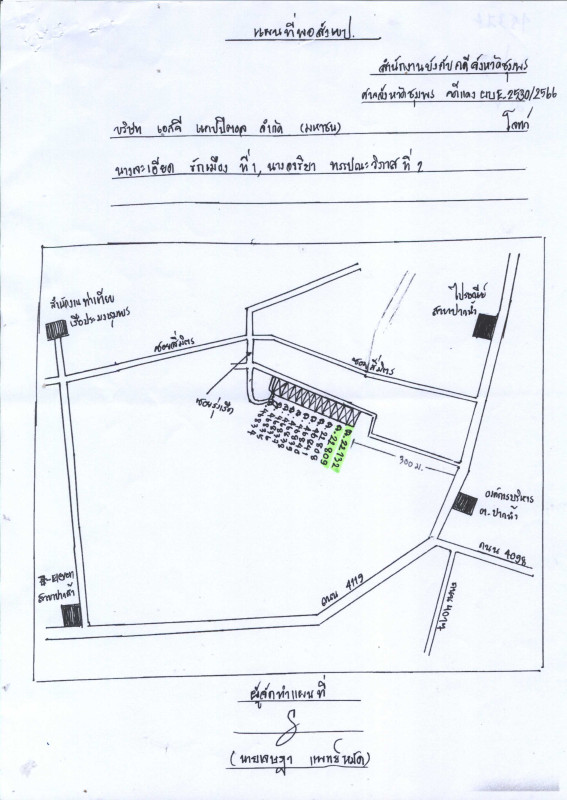 แผนที่พอสังเขป.
สำนักงานบังคับคดีจังหวัดชุมพร
ศาลจังหวัดชุมพร คดีแดง ผบE.2530/2566
บริษัท เอสซี แคปปิตอล จำกัด (มหาชน) โจทก์
นางละเอียด รักเมือง ที่ 1, นางอาริยา ที่ 2
สำนักงานท่าเทียบ
เรือประมงชุมพร
ซอยสี่มิตร
ซอยสี่มิตร
ไปรษณีย์
สาขาปากน้ำ
ซอยรุ่งเรือ
ฉ.22732
ฉ.22809
ฉ.22808
300 ม.
องค์การบริหาร
ต.ปากน้ำ
ถนน 4098
ถนน 4119
ถนน 4017
7-eleven
สาขาปากน้ำ
ผู้จัดทำแผนที่
(นายเจษฎา แพทย์หมัด)